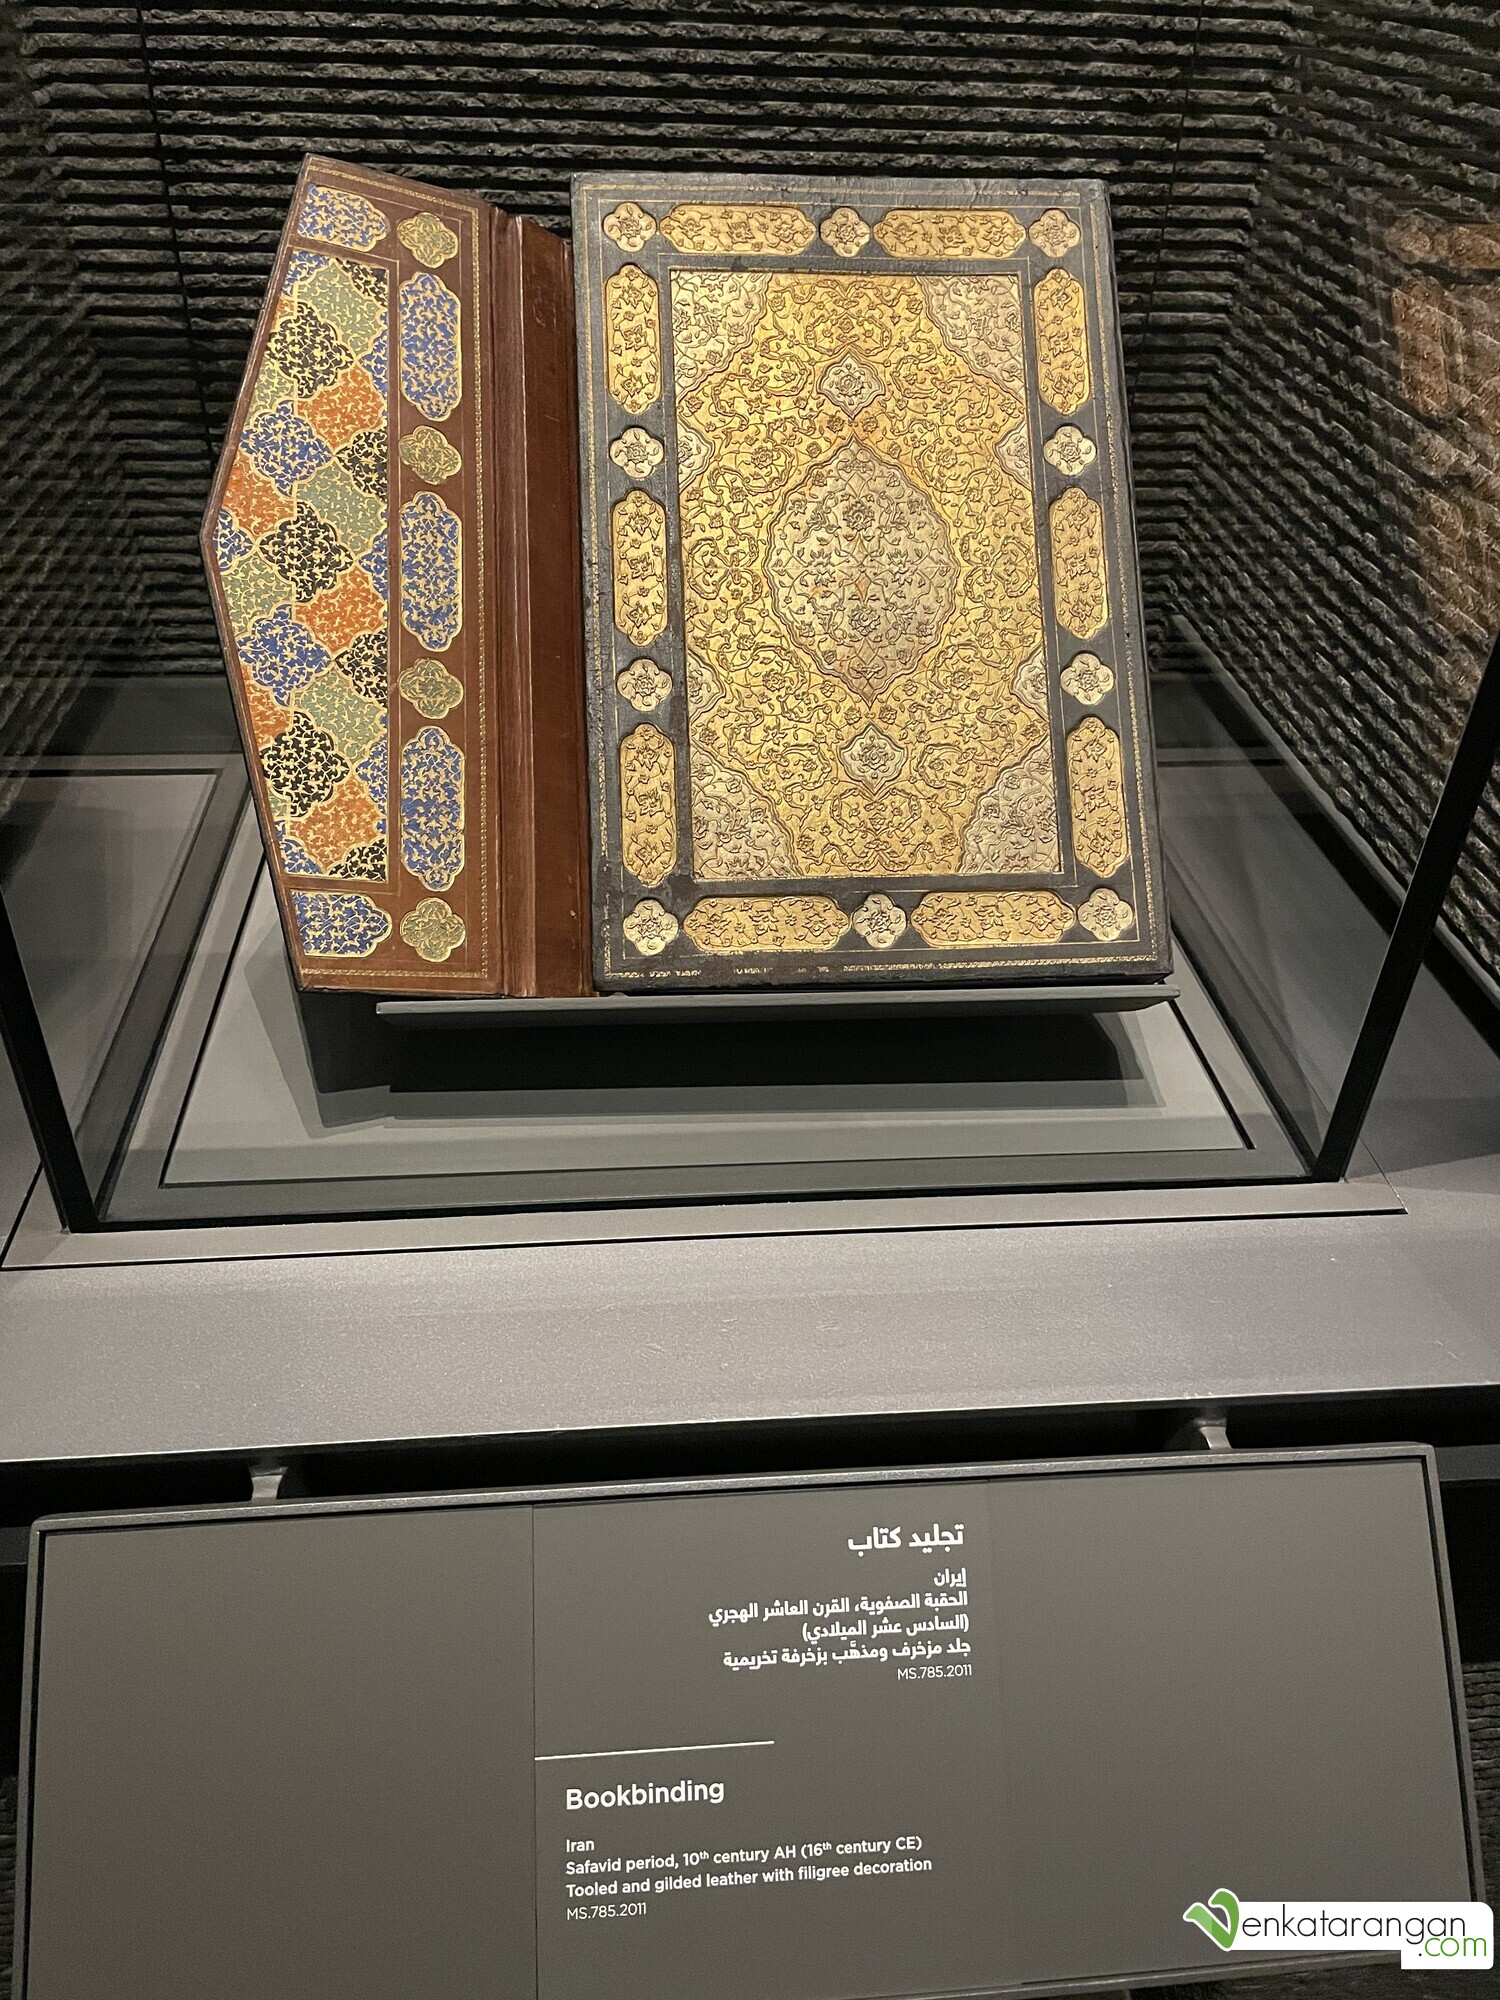 تجليد كتاب
إيران
الحقبة الصفوية، القرن العاشر الهجري
(السادس عشر الميلادي)
جلد مزخرف ومذهَّب بزخرفة تخريمية
MS.785.2011
Bookbinding
Iran
Safavid period, 10th century AH (16th century CE)
Tooled and gilded leather with filigree decoration
MS.785.2011
Venkatarangan
.com